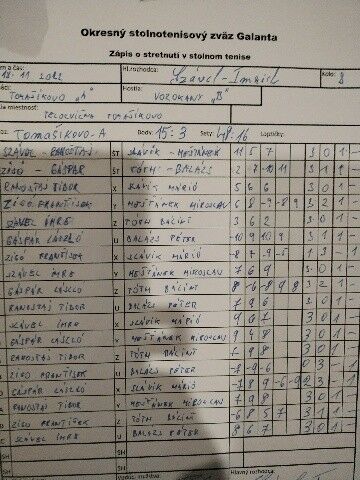 Okresný stolnotenisový zväz Galanta
Zápis o stretnutí v stolnom tenise
Hl.rozhodca: Szável - Imrich Kolo: 8
TOMAŠÍKOVO "A" Hostia: VOZOKANY "B"
miestnosť: TELOCVIČŇA TOMAŠÍKOVO
TOMAŠÍKOVO - A Body: 15:3 Sety: 48:16 Loptičky:
SZÁVEL - RANOSTAJ ŠT SLAVÍK - MEŠŤÁNEK 11 5 7 3 0 1 -
ZÍGÓ - GÁSPÁR ŠT TÓTH - BALÁZS 3 1 1 -
RANOSTAJ TIBOR X SLAVÍK MÁRIÓ 5 6 6 3 0 1 -
ZÍGÓ FRANTIŠEK Y MEŠŤÁNEK MIROSLAV 6 8 -9 -8 9 3 2 1 -
SZÁVEL IMRE Z TÓTH BÁLINT 3 6 2 3 0 1 -
GÁSPÁR LÁSZLÓ U BALÁZS PÉTER -10 9 10 9 3 1 1 -
ZÍGÓ FRANTIŠEK X SLAVÍK MÁRIÓ -8 7 -9 -5 1 3 -
SZÁVEL IMRE Y MEŠŤÁNEK MIROSLAV 7 6 9 3 0 1 -
GÁSPÁR LÁSZLÓ Z TÓTH BÁLINT 8 -6 -8 9 8 3 2 1 -
RANOSTAJ TIBOR U BALÁZS PÉTER 7 9 6 3 0 1 -
SZÁVEL IMRE X SLAVÍK MÁRIÓ 9 6 7 3 0 1 -
GÁSPÁR LÁSZLÓ Y MEŠŤÁNEK MIROSLAV 9 4 8 3 0 1 -
RANOSTAJ TIBOR Z TÓTH BÁLINT 3 0 1 -
ZÍGÓ FRANTIŠEK U BALÁZS PÉTER -8 -9 -6 0 3 -
GÁSPÁR LÁSZLÓ X SLAVÍK MÁRIÓ 2 3 -
RANOSTAJ TIBOR Y MEŠŤÁNEK MIROSLAV 7 9 8 3 0 1 -
ZÍGÓ FRANTIŠEK Z TÓTH BÁLINT -6 8 5 7 3 1 1 -
SZÁVEL IMRE U BALÁZS PÉTER 8 6 7 3 0 1 -
ŠH ŠH
Hlavný rozhodca: